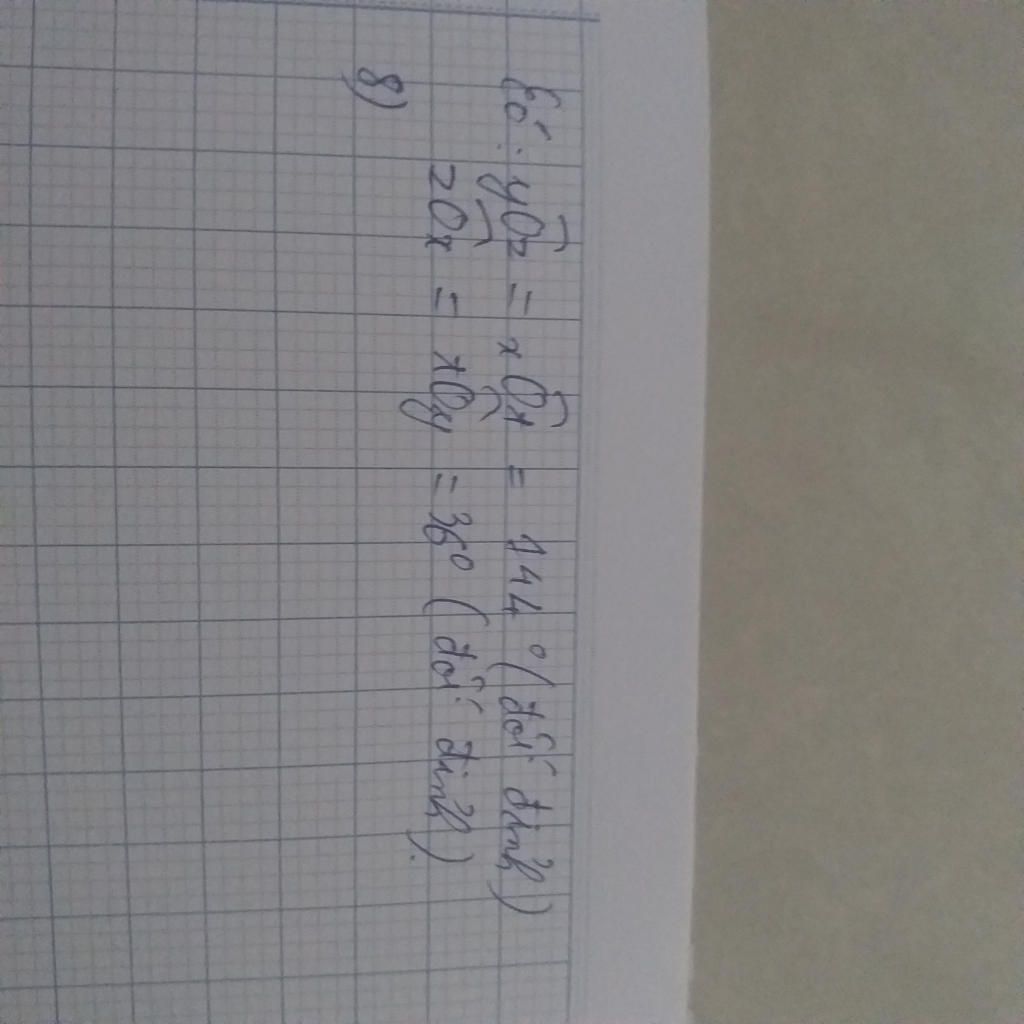 Có: yOz = xOt = 144° (đối đỉnh)
zOx = tOy = 36° (đối đỉnh).
8)